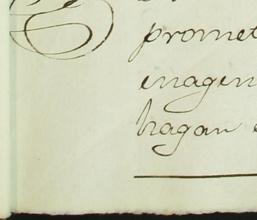 promet
enagen
hagan